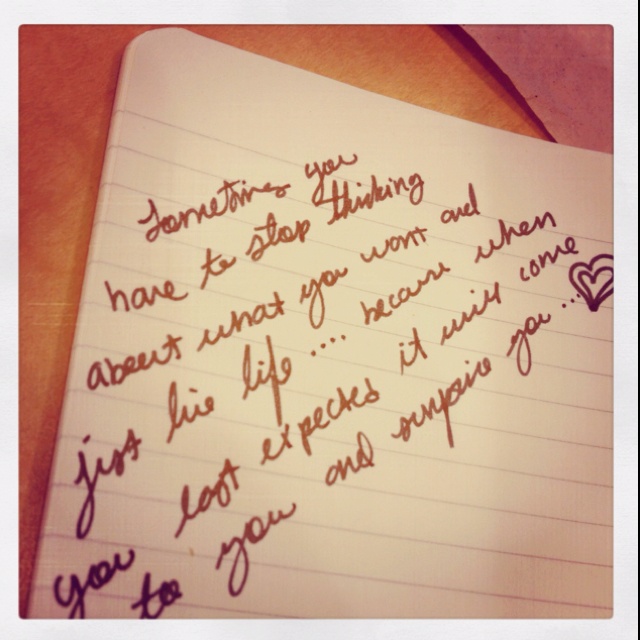 Sometimes you
have to stop thinking
about what you want and
just live life .... because when
you last expected it will come
to you and surprise you ...